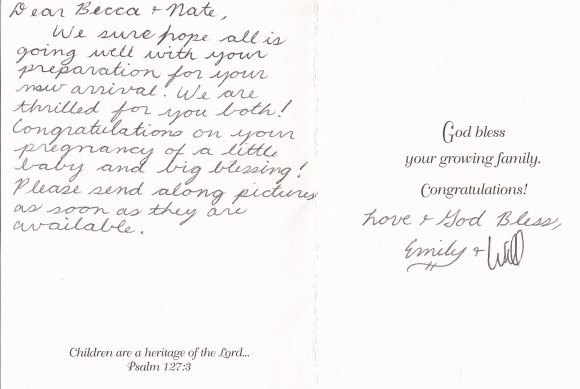 Dear Becca + Nate,
We sure hope all is
going well with your
preparation for your
new arrival. We are
thrilled for you both!
Congratulations on your
pregnancy of a little
baby and big blessing!
Please send along pictures
as soon as they are
available.
Children are a heritage of the Lord...
Psalm 127:3
God bless
your growing family.
Congratulations!
Love + God Bless,
Emily + Will